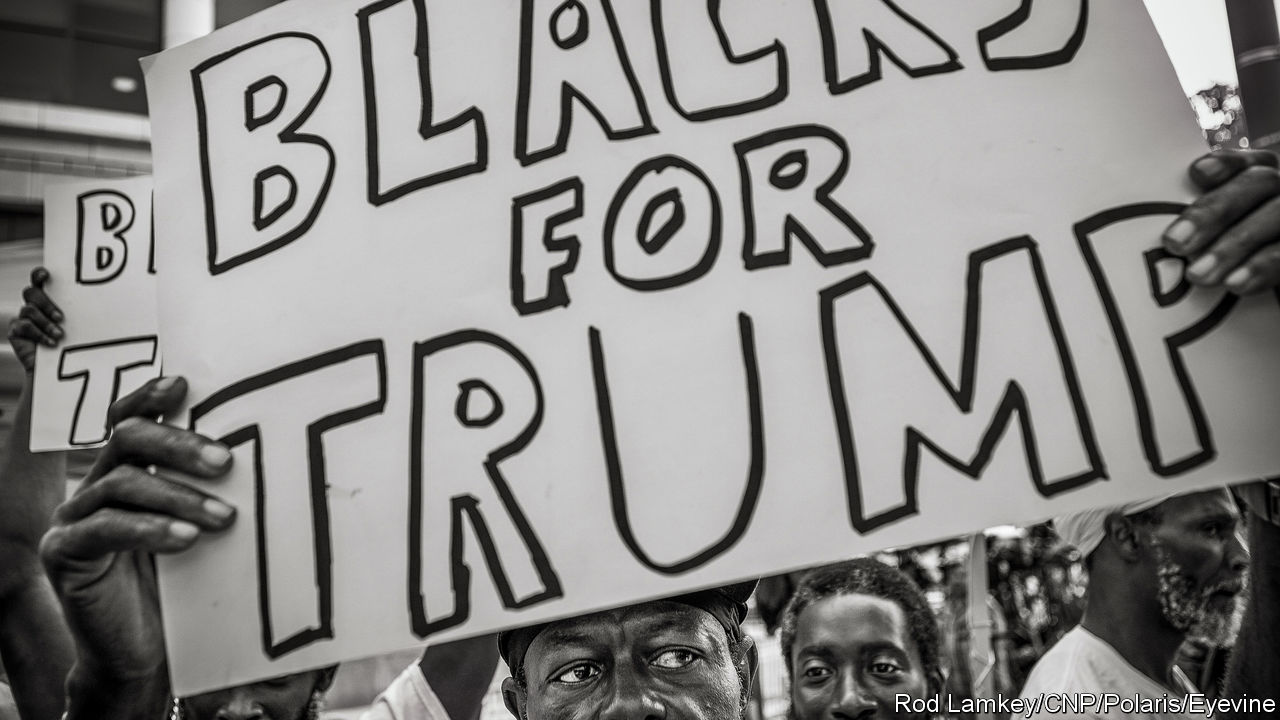 BLACKS
FOR
TRUMP
B
T
Rod Lamkey/CNP/Polaris/Eyevine